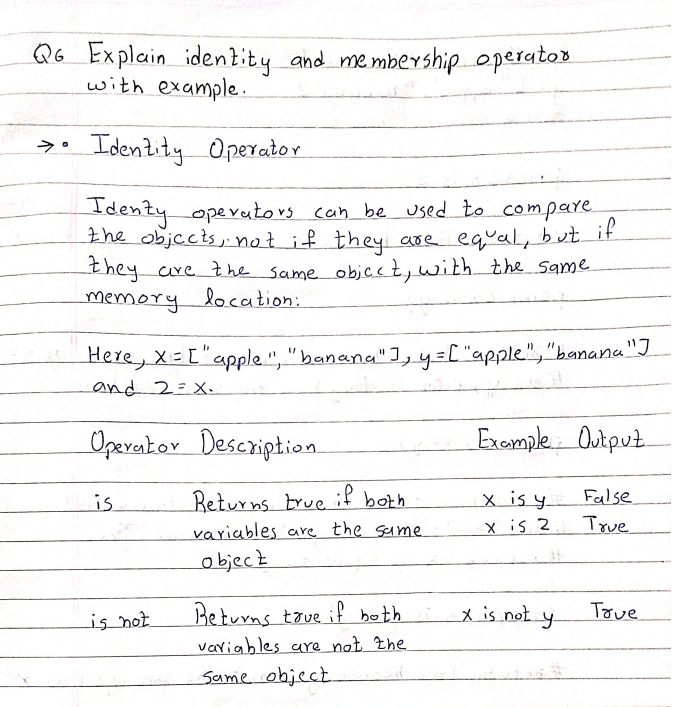 Q6 Explain identity and membership operator
with example.
→ • Identity Operator
Identy operators can be used to compare
the objects, not if they are equal, but if
they are the same object, with the same
memory location:
Here, x = ["apple", "banana"], y = ["apple", "banana"]
and z = x.
Operator Description Example Output
is Returns true if both x is y False
variables are the same x is z True
object
is not Returns true if both x is not y True
variables are not the
same object